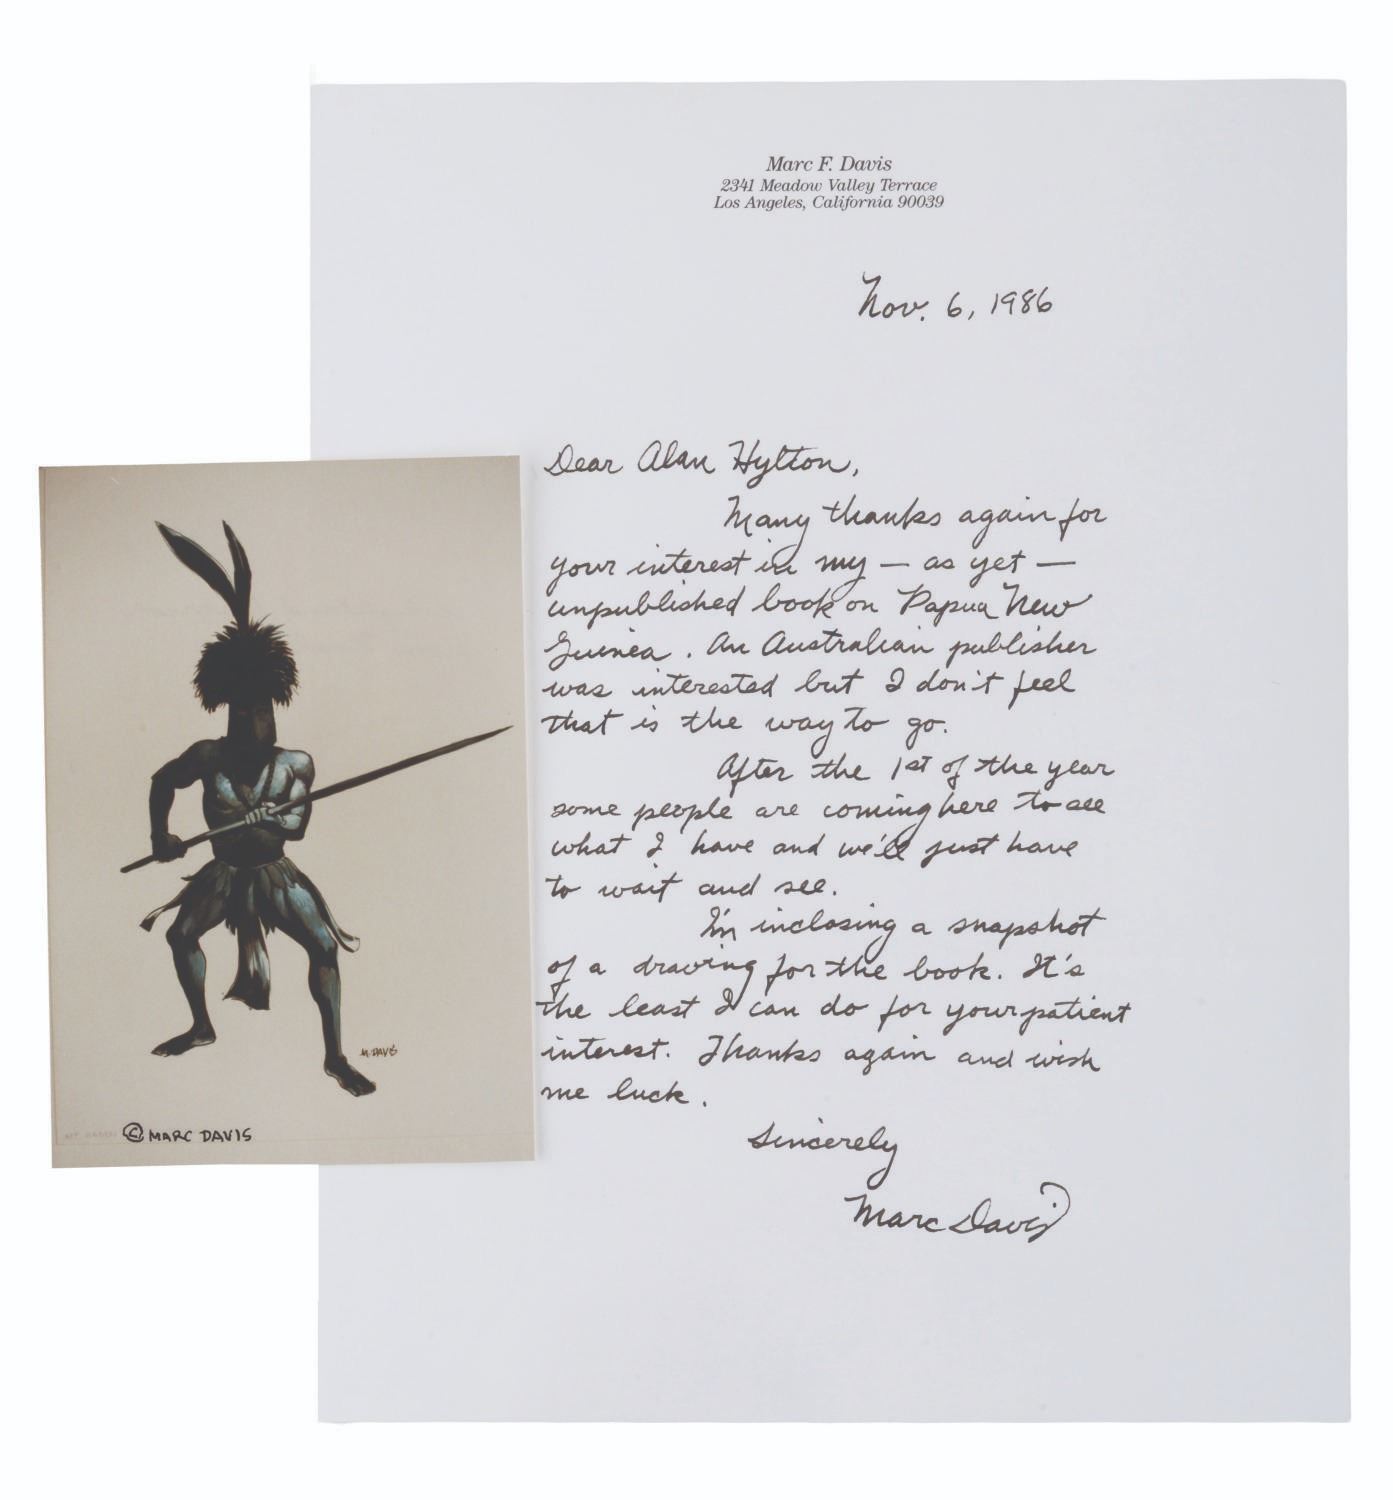 Marc F. Davis
2341 Meadow Valley Terrace
Los Angeles, California 90039
Nov. 6, 1986
Dear Alan Hylton,
Many thanks again for
your interest in my — as yet —
unpublished book on Papua New
Guinea. An Australian publisher
was interested but I don't feel
that is the way to go.
After the 1st of the year
some people are coming here to see
what I have and we'll just have
to wait and see.
I'm inclosing a snapshot
of a drawing for the book. It's
the least I can do for your patient
interest. Thanks again and wish
me luck.
Sincerely
Marc Davis
M. DAVIS
© MARC DAVIS